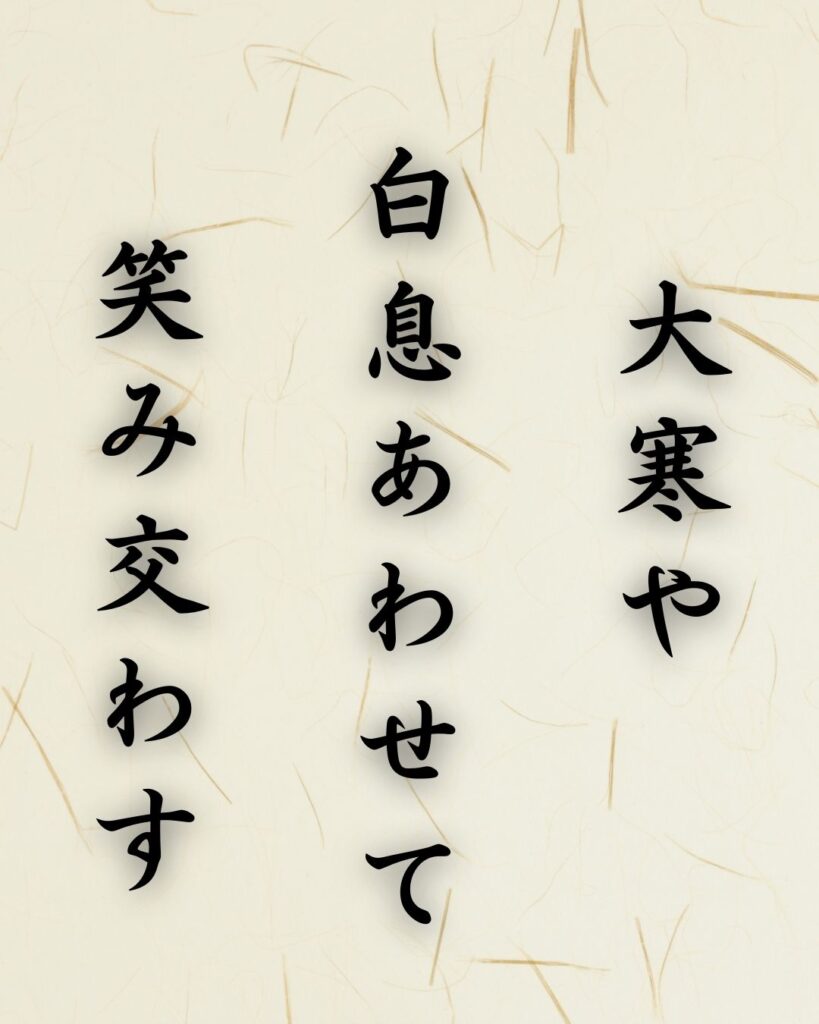 大寒や
白息あわせて
笑み交わす